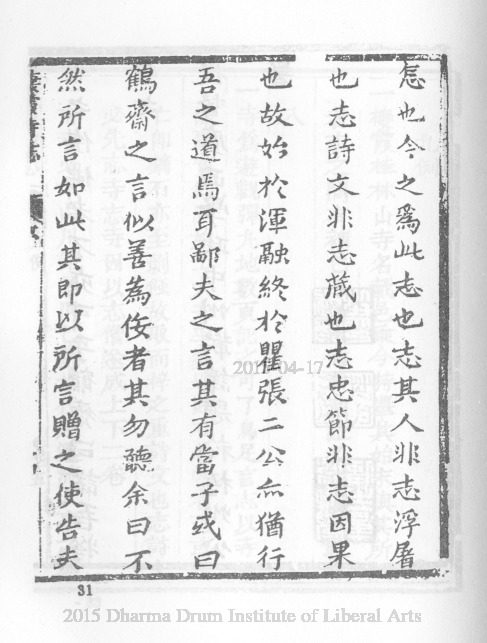 怎也今之爲此志也志其人非志浮屠
也志詩文非志蔵也志忠節非志因果
也故始於渾融終於瞿張二公亦猶行
吾之道焉耳鄙夫之言其有當子或曰
鶴齋之言似善為佞者其勿聽余曰不
然所言如此其即以所言贈之使告夫
31
2015 Dharma Drum Institute of Liberal Arts